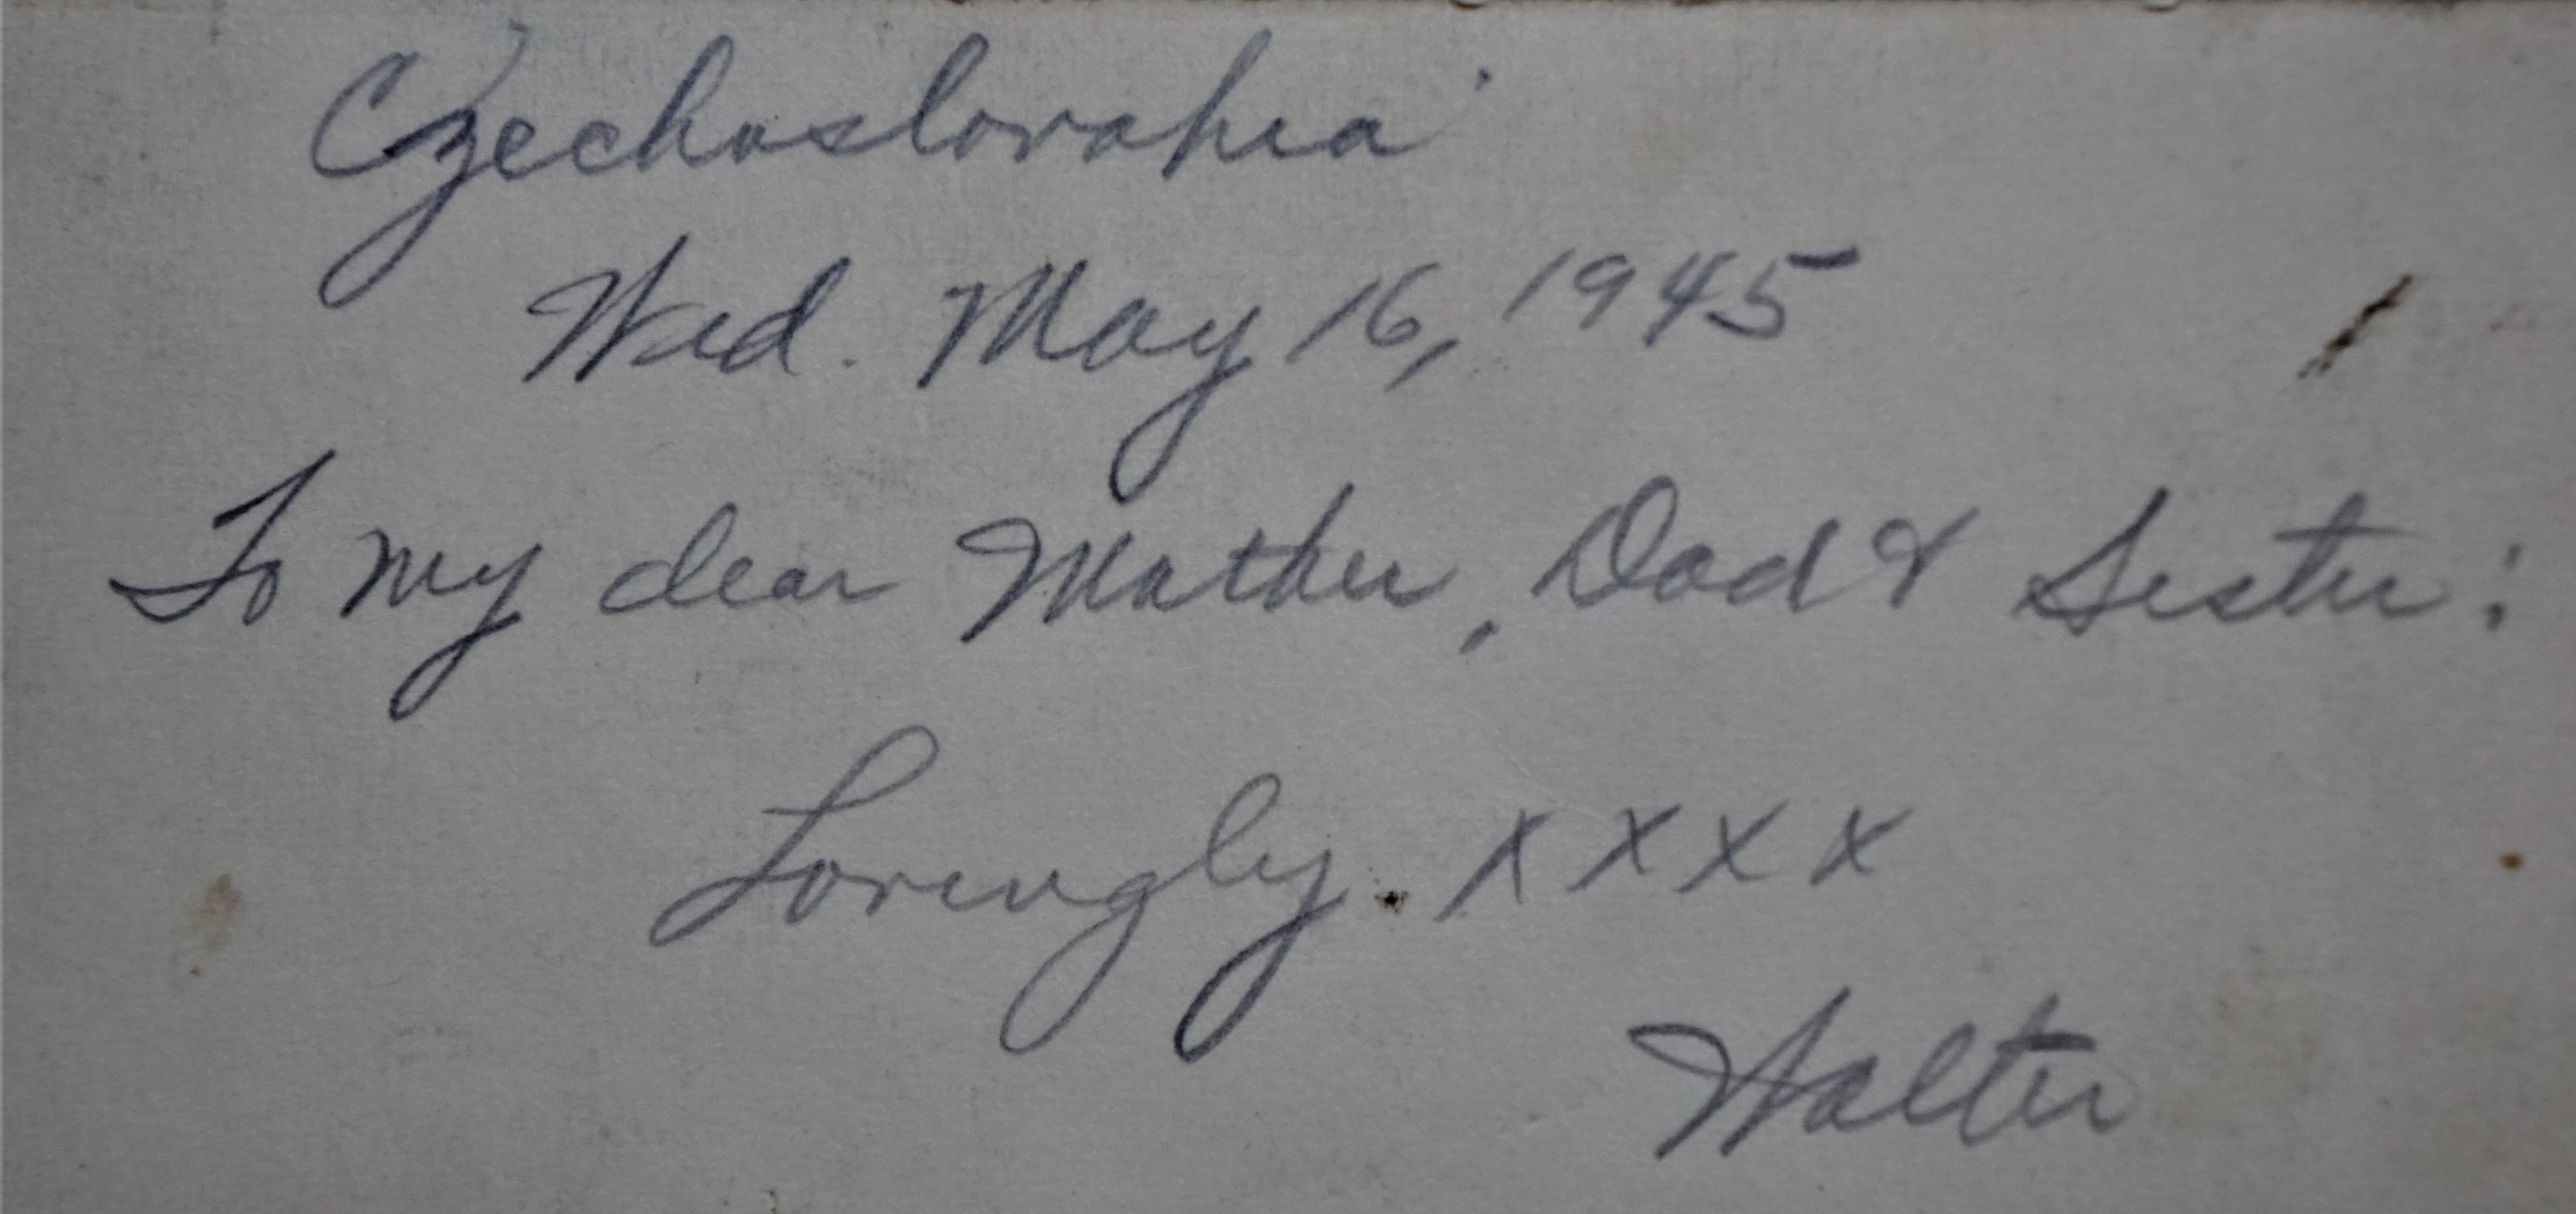 Czechoslovakia
Wed. May 16, 1945
To my dear Mother, Dad & Sister:
Lovingly. xxxx
Walter